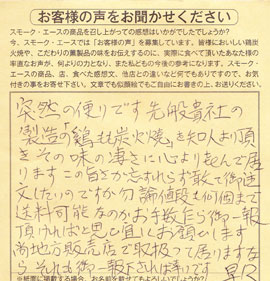 お客様の声をお聞かせください
スモーク・エースの商品を召し上がっての感想はいかがでしたでしょうか?
今、スモーク・エースでは「お客様の声」を募集しています。皆様においしい鶏炭
火焼や、こだわりの燻製品の味をお伝えするのに、実際に食べて頂いたあなた様の
率直なお声が、何よりの力となり、また私どもの今後の参考になります。スモーク・
エースの商品、店、食べた感想文、他店との違いなど何でもありますので、お気
付きの事をお寄せ下さい。文章でも似顔絵でもご自由にお書きの上、お送りください。
突然の便りです先般貴社の
製造の鶏もも炭火焼を知人より頂
きその味の凄さに心よりよろこんで居
りますこの旨さが忘れられず敢て御注
文したいのですが勿論値段も何個まで
送料可能なのかお手数作ら御一報
頂ければと思い宜しくお願いします
尚地方販売店で取扱って居りますな
らそれも御一報下されば幸いです 早々
※紙面に掲載する場合、お名前を載せてもよろしいでしょうか?